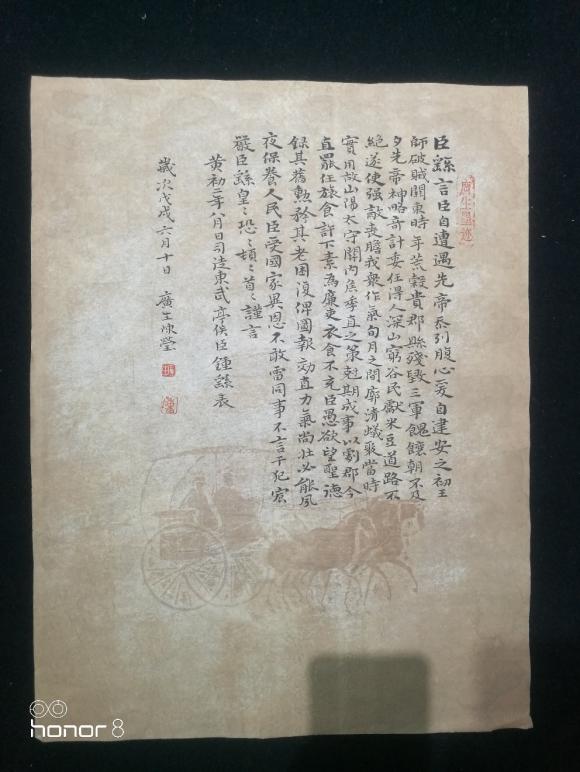 廣生墨迹
臣繇言臣自遭遇先帝忝列腹心爰自建安之初王
師破賊關東時年荒穀貴郡縣殘毀三軍餽饟朝不及
夕先帝神略奇計委任得人深山窮谷民獻米豆道路不
絕遂使强敵喪膽我衆作氣旬月之間廓清蟻聚當時
實用故山陽太守關內侯季直之策剋期成事以劇郡今
直罷任旅食許下素為廉吏衣食不充臣愚欲望聖德
録其舊勳矜其老困復俾圖報効直力氣尚壯必能夙
夜保養人民臣受國家異恩不敢雷同事不言干犯宸
嚴臣繇皇〻恐〻頓〻首〻謹言
黄初二年八月日司徒東武亭侯臣鍾繇表
歲次戊戌六月十日 廣生陳瑩
honor 8